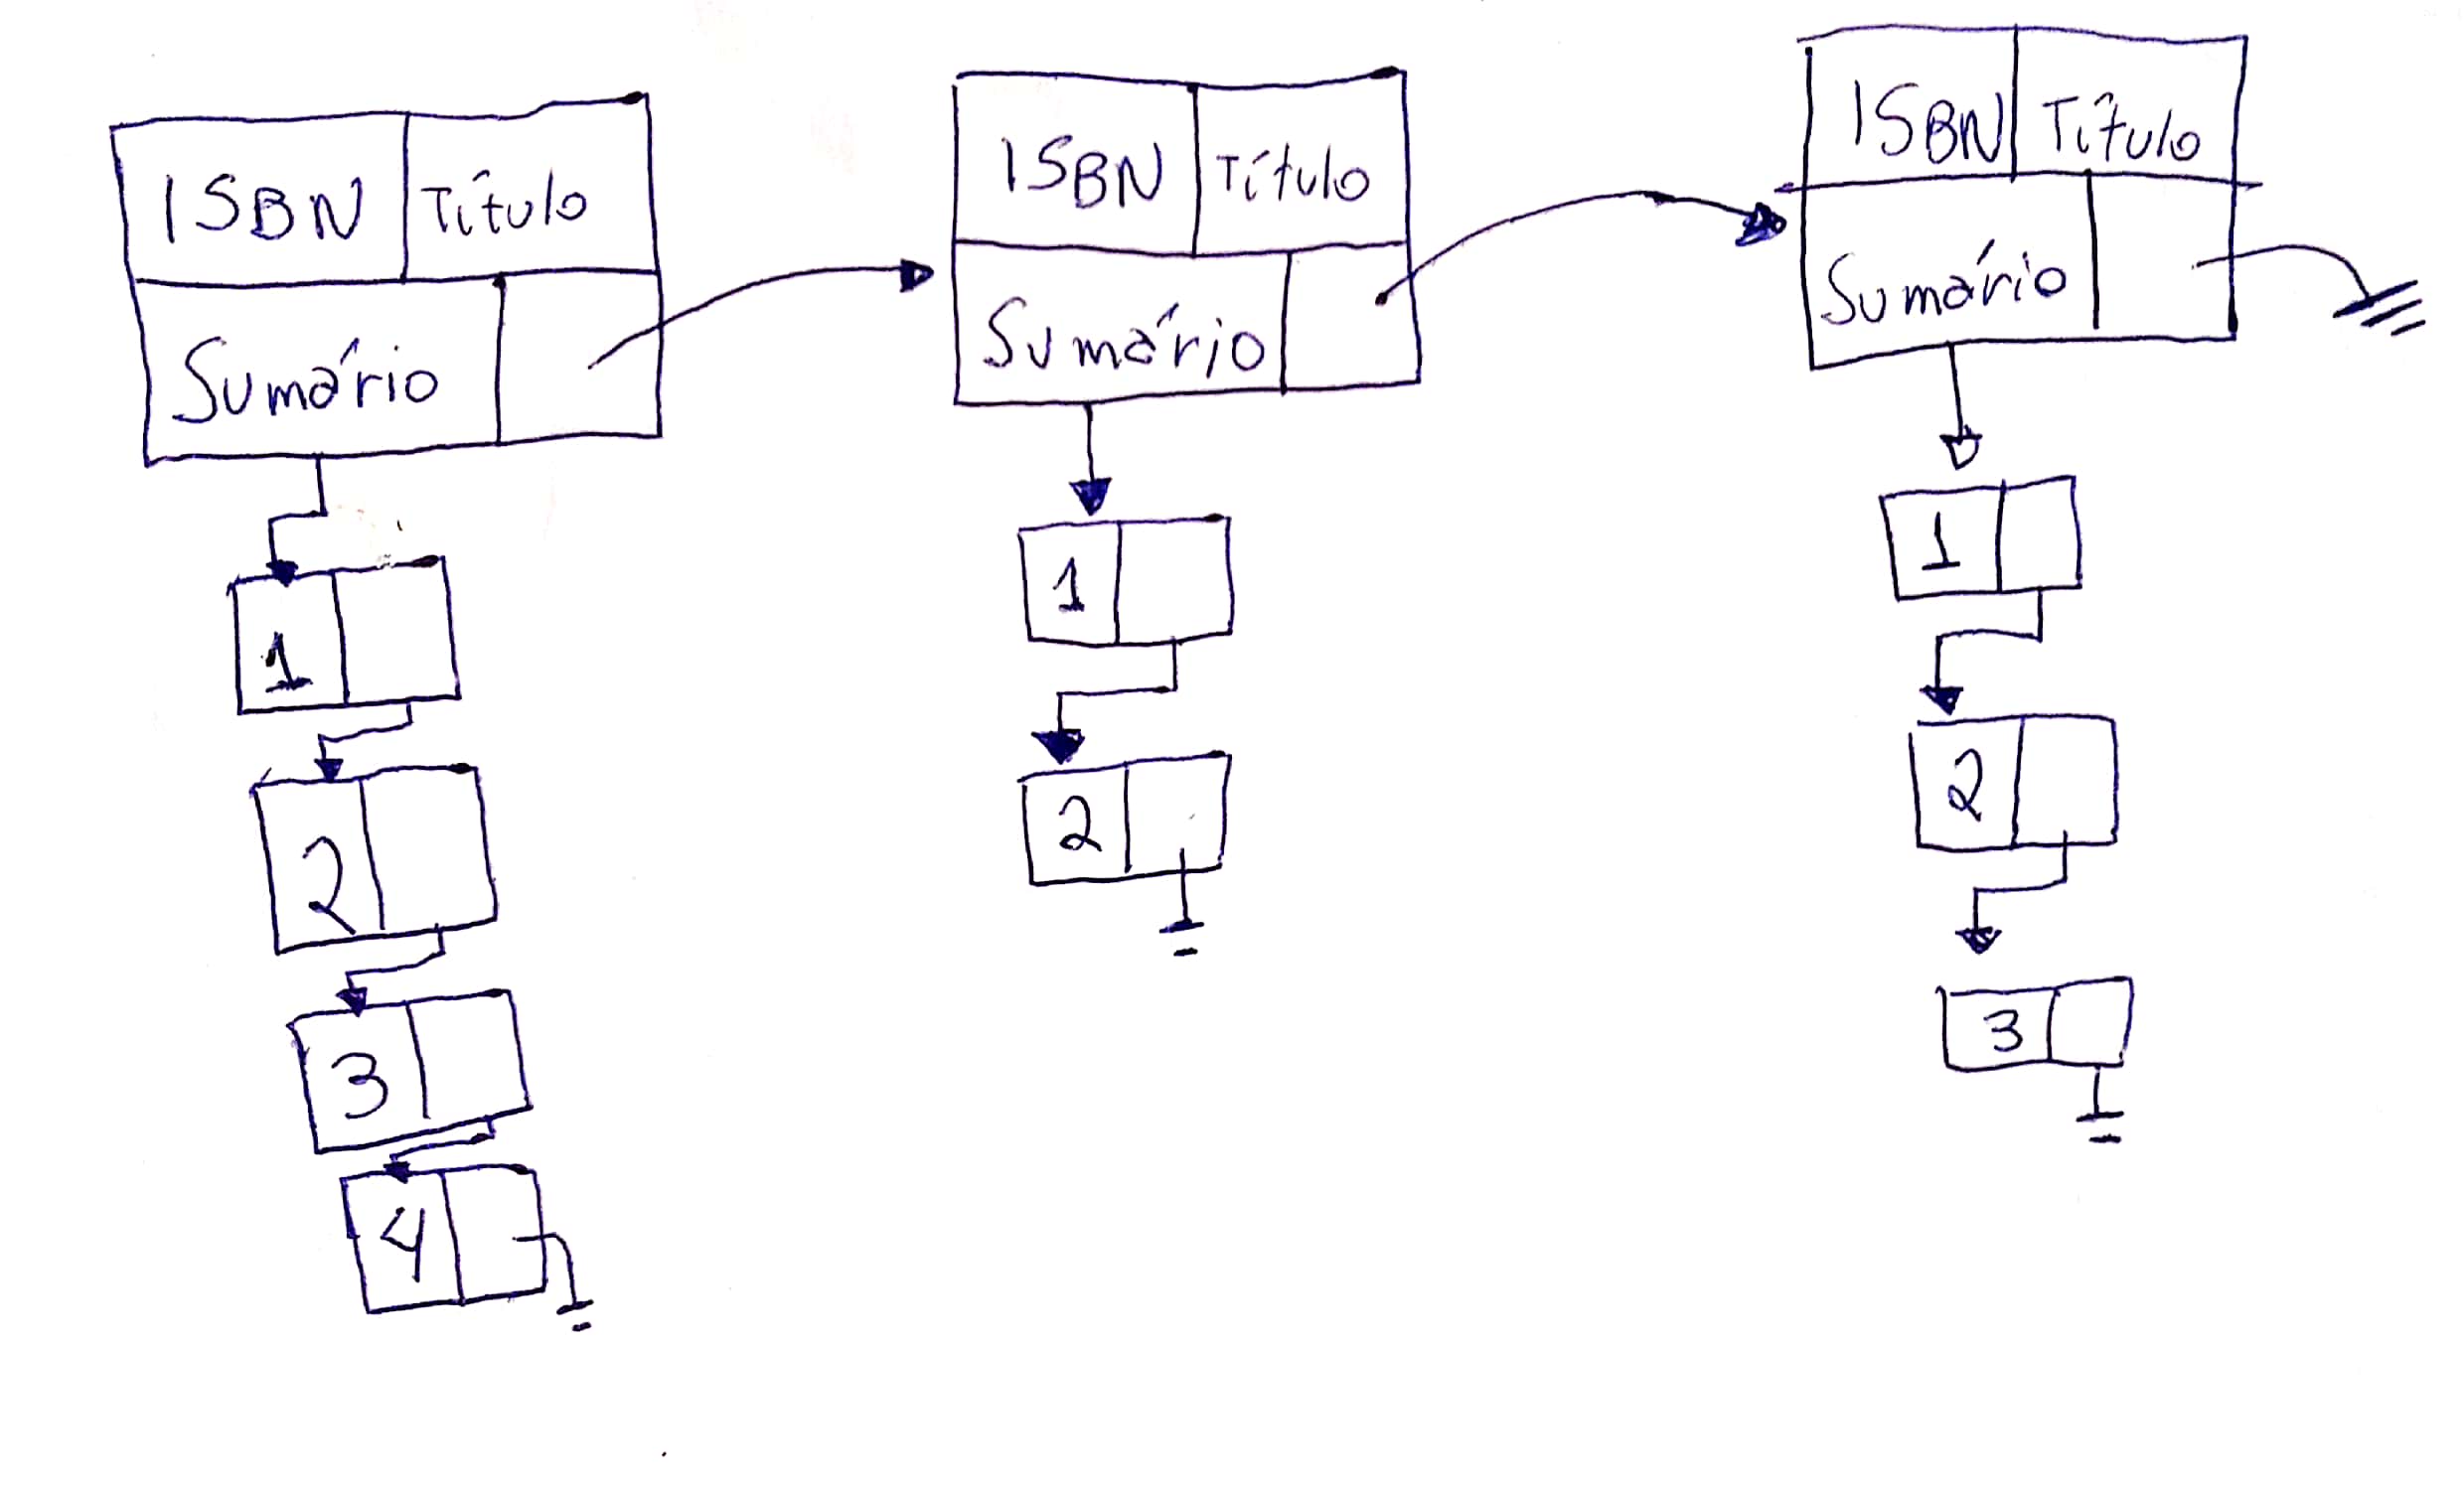 ISBN Título
Sumário
1
2
3
4
ISBN Título
Sumário
1
2
ISBN Título
Sumário
1
2
3